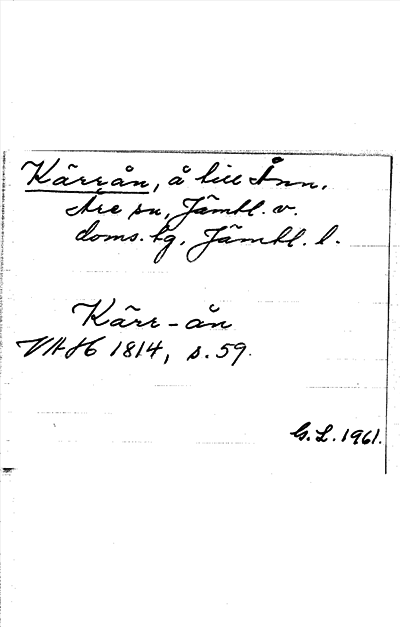 Kärrån, å till Ånn,
Åre sn, Jämtl. v.
doms. tg, Jämtl. l.
Kärr-ån
VAH 1814, s. 59.
G. L. 1961.